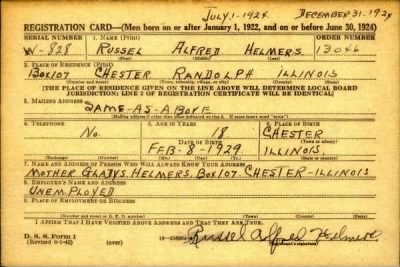 JULY.1-1924. DECEMBER.31-1924
REGISTRATION CARD—(Men born on or after January 1, 1922, and on or before June 30, 1924)
SERIAL NUMBER 1. NAME (Print) ORDER NUMBER
W-828 RUSSEL ALFRED HELMERS. 13046
(First) (Middle) (Last)
2. PLACE OF RESIDENCE (Print)
BOX107 CHESTER RANDOLPH ILLINOIS
(Number and street) (Town, township, village, or city) (County) (State)
[THE PLACE OF RESIDENCE GIVEN ON THE LINE ABOVE WILL DETERMINE LOCAL BOARD
JURISDICTION; LINE 2 OF REGISTRATION CERTIFICATE WILL BE IDENTICAL]
3. MAILING ADDRESS
SAME-AS-ABOVE
4. TELEPHONE 5. AGE IN YEARS 6. PLACE OF BIRTH
No. 18 CHESTER
DATE OF BIRTH (Town or county)
FEB-8-1929. ILLINOIS
(Exchange) (Number) (Mo.) (Day) (Yr.) (State or country)
7. NAME AND ADDRESS OF PERSON WHO WILL ALWAYS KNOW YOUR ADDRESS
MOTHER GLADYS. HELMERS. BOX107 CHESTER-ILLINOIS
8. EMPLOYER'S NAME AND ADDRESS
UNEMPLOYED
9. PLACE OF EMPLOYMENT OR BUSINESS
(Number and street or R. F. D. number) (Town) (County) (State)
I AFFIRM THAT I HAVE VERIFIED ABOVE ANSWERS AND THAT THEY ARE TRUE.
D. S. S. Form 1
(Revised 6-1-42) Russel Alfred Helmers
(Registrant's signature)